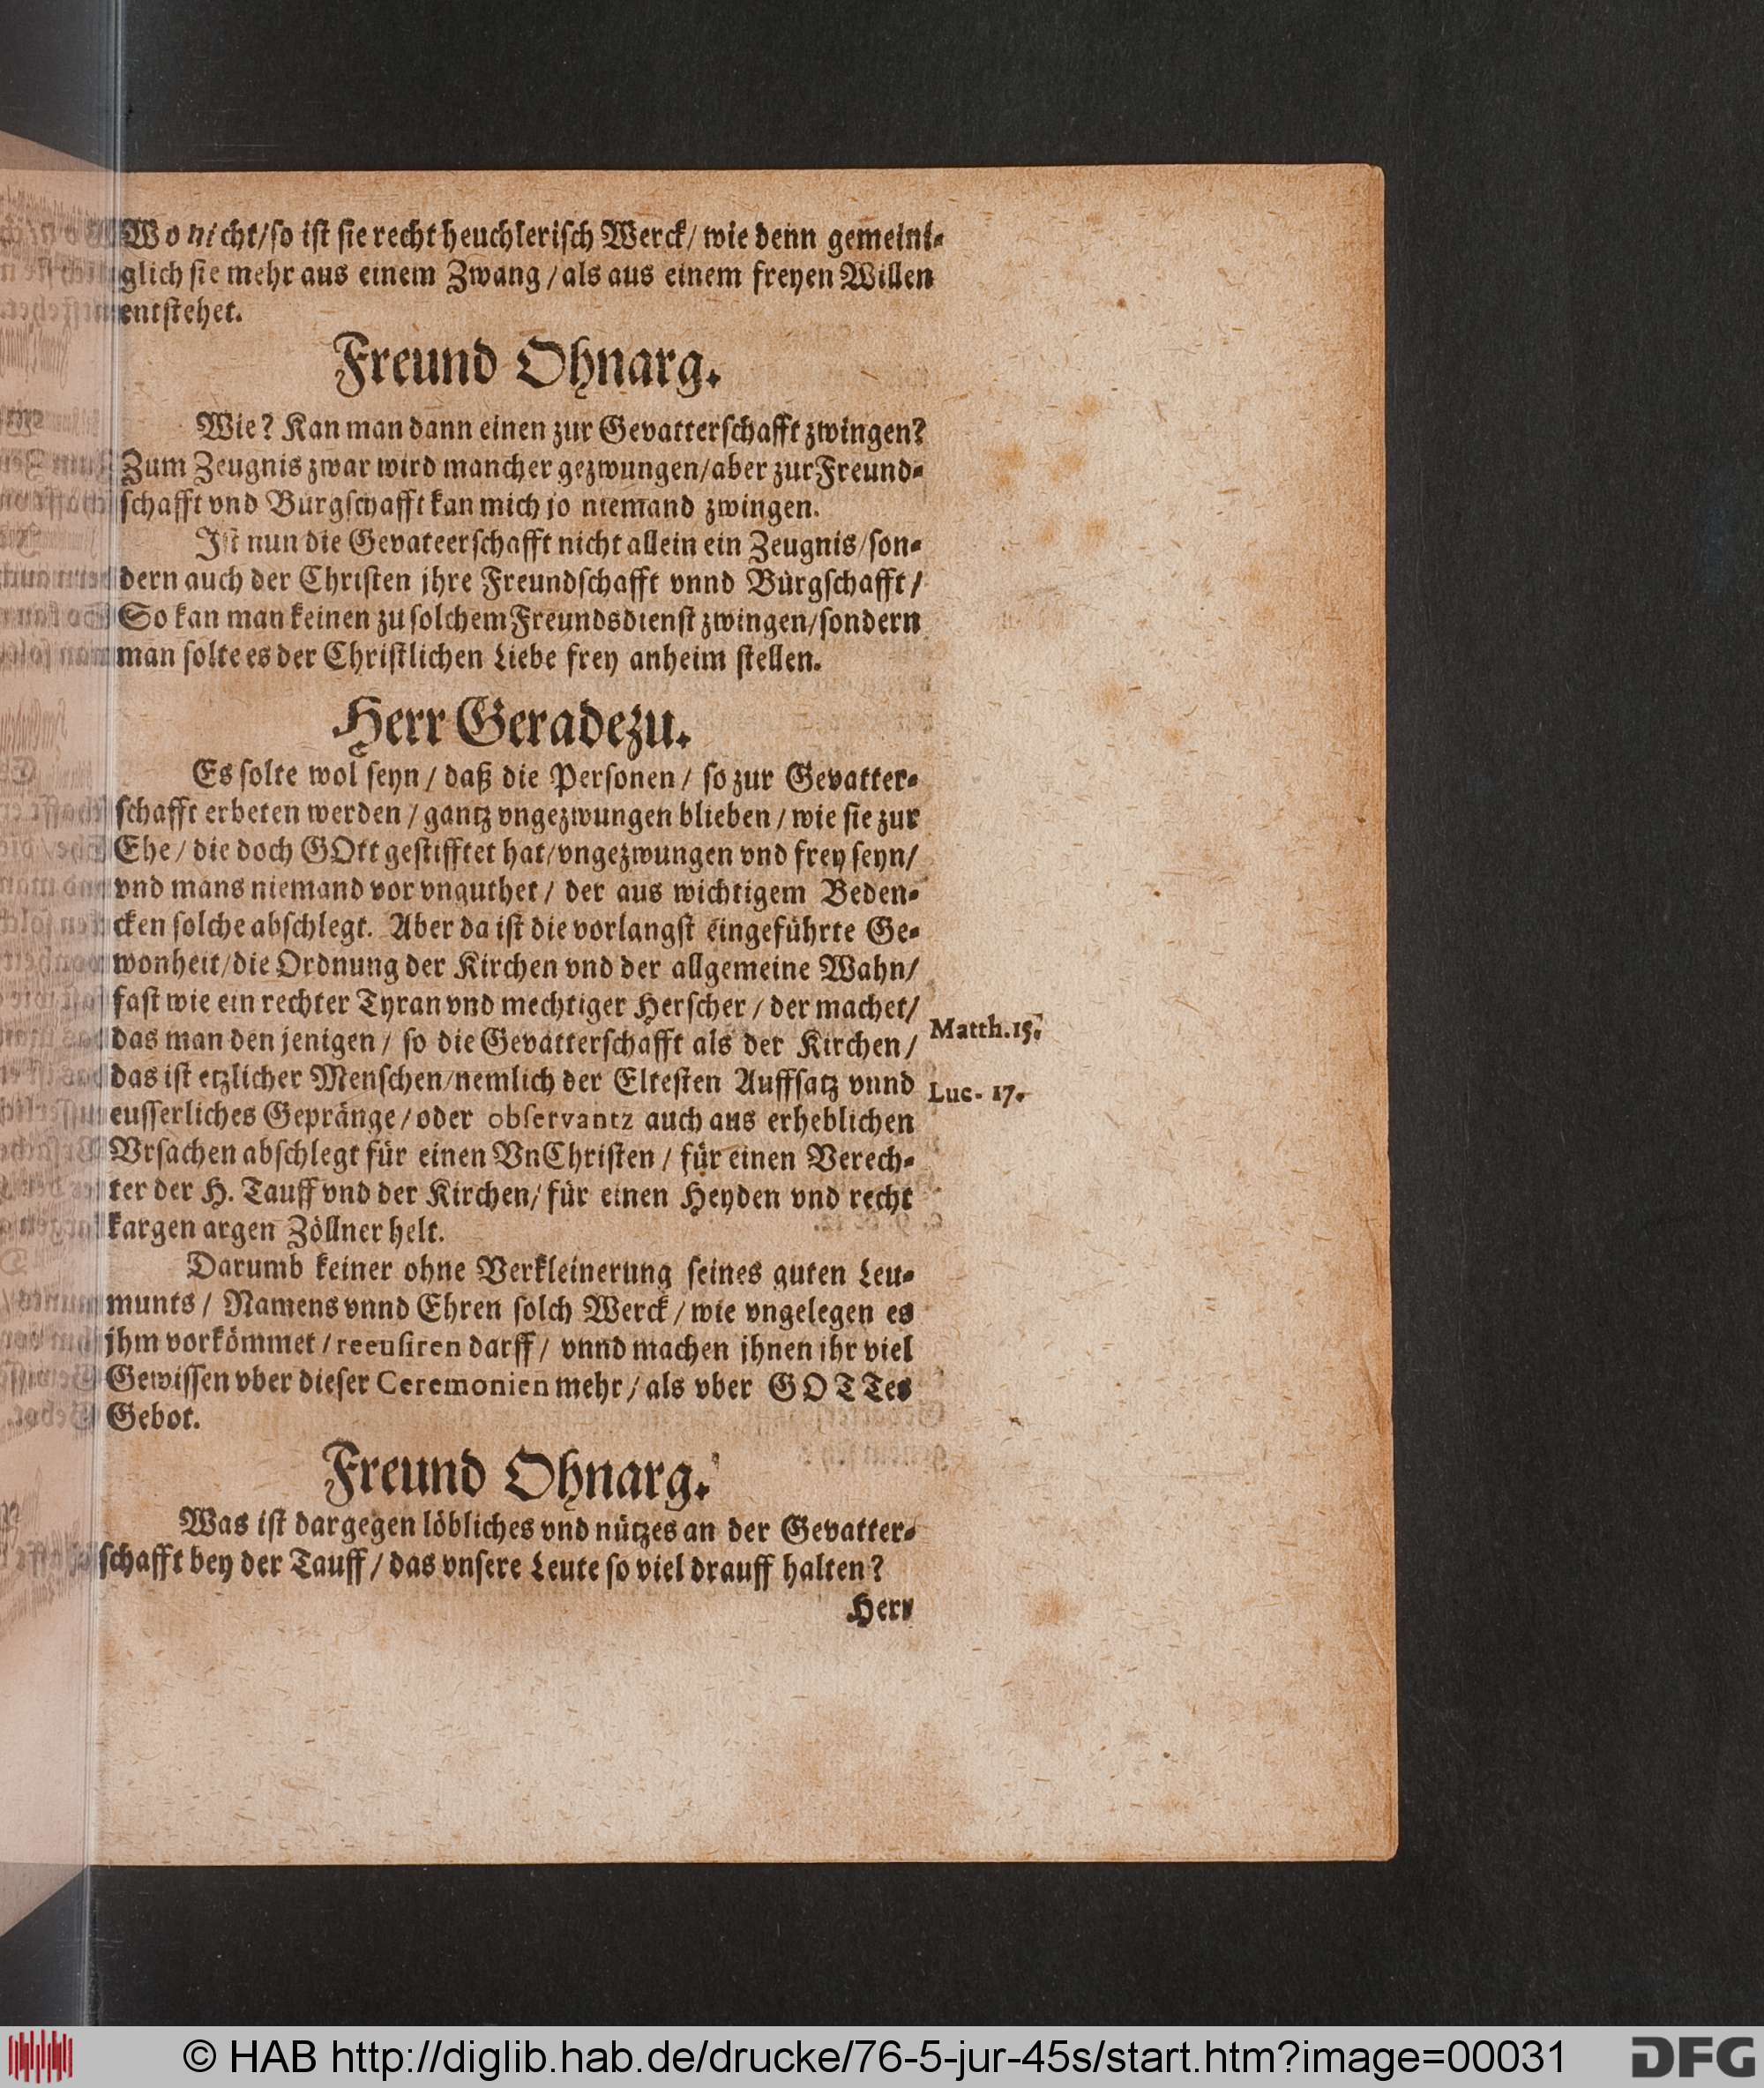 Wo nicht/so ist sie recht heuchlerisch Werck/ wie denn gemeini-
glich sie mehr aus einem Zwang / als aus einem freyen Willen
entstehet.
Freund Ohnarg.
Wie? Kan man dann einen zur Gevatterschafft zwingen?
Zum Zeugnis zwar wird mancher gezwungen/aber zur Freund-
schafft vnd Bürgschafft kan mich jo niemand zwingen.
Ist nun die Gevateerschafft nicht allein ein Zeugnis/son-
dern auch der Christen jhre Freundschafft vnnd Bürgschafft /
So kan man keinen zu solchem Freundsdienst zwingen/sondern
man solte es der Christlichen Liebe frey anheim stellen.
Herr Geradezu.
Es solte wol seyn / daß die Personen / so zur Gevatter-
schafft erbeten werden / gantz vngezwungen blieben / wie sie zur
Ehe / die doch GOtt gestifftet hat/vngezwungen vnd frey seyn/
vnd mans niemand vor vnguthet / der aus wichtigem Beden-
cken solche abschlegt. Aber da ist die vorlangst eingeführte Ge-
wonheit/die Ordnung der Kirchen vnd der allgemeine Wahn/
fast wie ein rechter Tyran vnd mechtiger Herscher / der machet/
das man den jenigen / so die Gevatterschafft als der Kirchen /
Matth.15.
das ist etzlicher Menschen/nemlich der Eltesten Auffsatz vnnd
Luc. 17.
eusserliches Gepränge / oder observantz auch aus erheblichen
Vrsachen abschlegt für einen VnChristen / für einen Verech-
ter der H. Tauff vnd der Kirchen/ für einen Heyden vnd recht
kargen argen Zöllner helt.
Darumb keiner ohne Verkleinerung seines guten Leu-
munts / Namens vnnd Ehren solch Werck / wie vngelegen es
jhm vorkömmet / reeusiren darff / vnnd machen jhnen ihr viel
Gewissen vber dieser Ceremonien mehr / als vber GOTTes
Gebot.
Freund Ohnarg.
Was ist dargegen löbliches vnd nützes an der Gevatter-
schafft bey der Tauff / das vnsere Leute so viel drauff halten?
Herr
© HAB http://diglib.hab.de/drucke/76-5-jur-45s/start.htm?image=00031
DFG